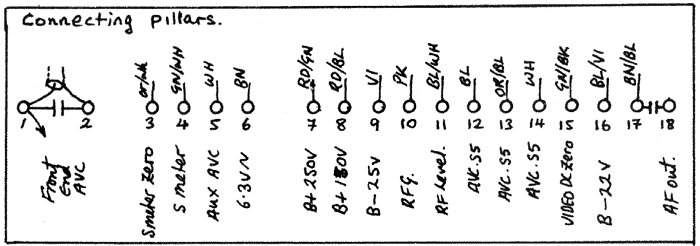 Connecting pillars.
or/wh GN/WH WH BN RD/GN RD/BL VI PK BL/WH BL OR/BL WH GN/BK BL/VI BN/BL
1 2 3 4 5 6 7 8 9 10 11 12 13 14 15 16 17 18
Front
End
AVC
Smeter zero
S meter
Aux AVC
6.3V~
B+250V
B+180V
B-25V
RFG.
RF Level.
AVC.S5
AVC.S5
AVC.S5
VIDEO DC zero
B-22V
AF out.